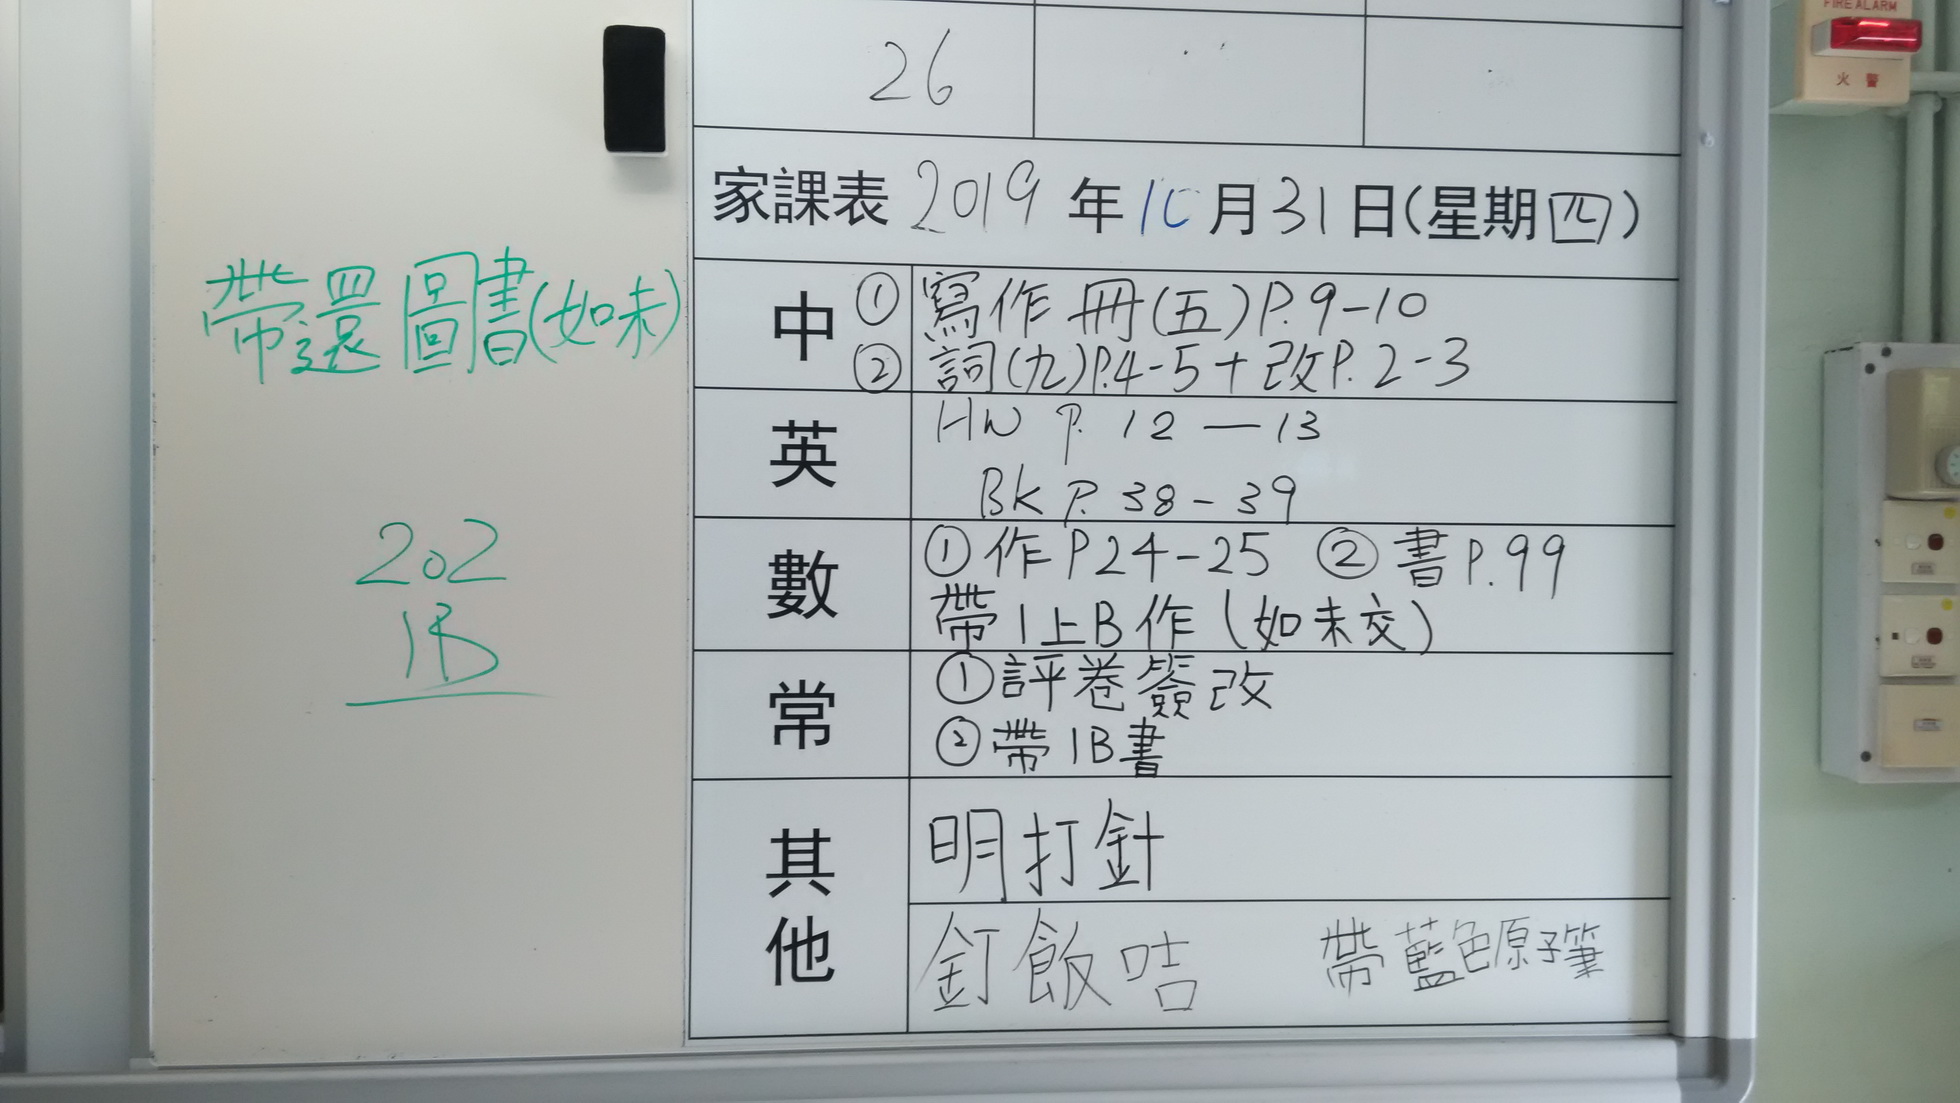 FIRE ALARM
火警
26
家課表 2019 年 10 月 31 日(星期四)
帶還圖書(如未)
202
1B
中 ① 寫作冊(五)P.9-10
② 詞(九)P.4-5+改P.2-3
英 HW P. 12 — 13
BK P. 38 - 39
數 ①作P24-25 ②書P.99
帶1上B作(如未交)
常 ①評卷簽改
②帶1B書
其他 明打針
釘飯咭 帶藍色原子筆